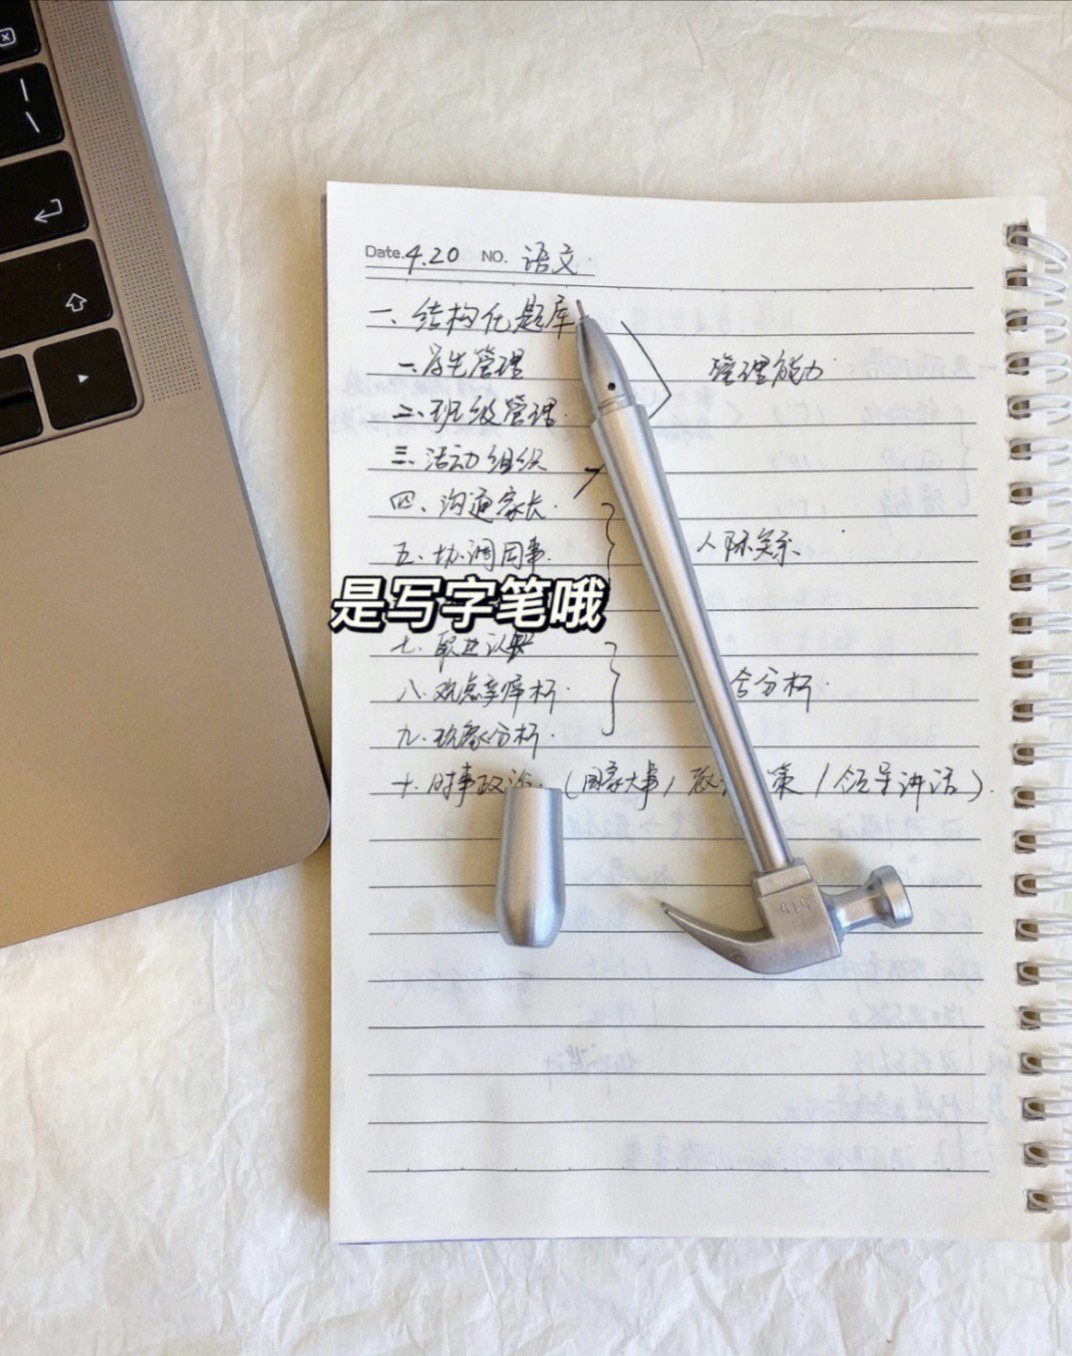 Date. 4.20 NO. 语文
一、结构化题库
一、学生管理
管理能力
二、班级管理
三、活动组织
四、沟通家长
五、协调同事
人际关系
是写字笔哦
七、职业认知
八、观点辛库析
分析
九、现象分析
十、时事政治（国家大事/教 策/领导讲话）